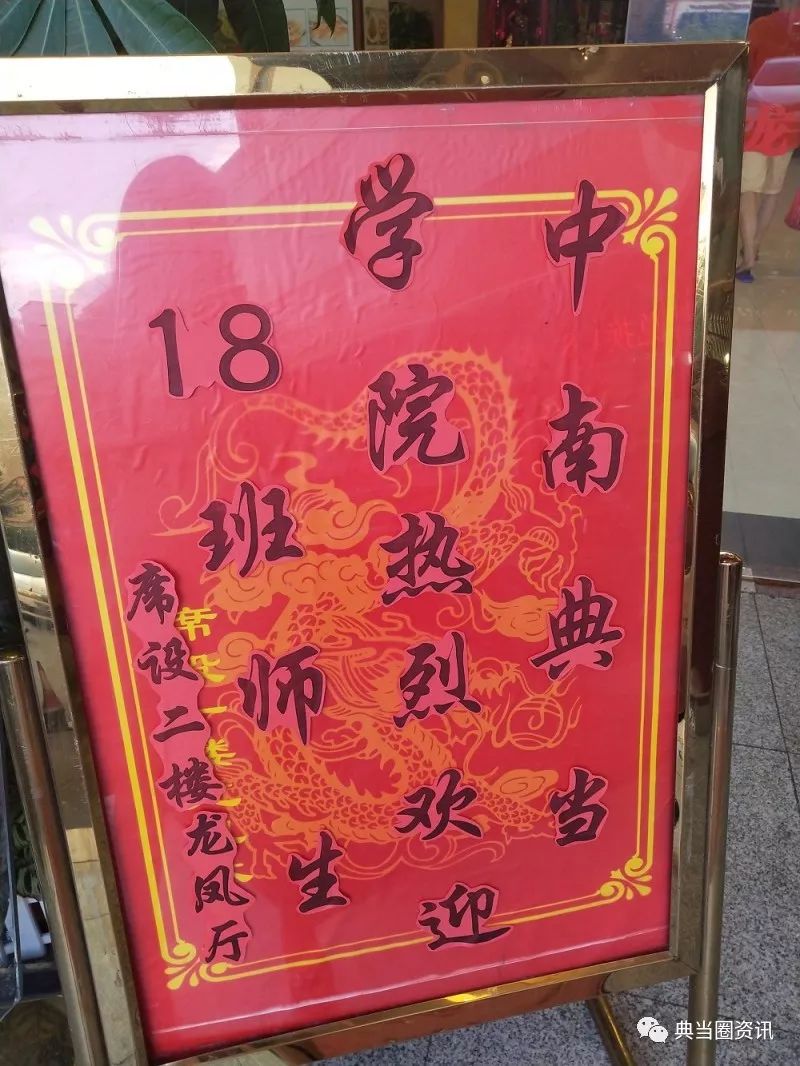 中南典当
学院热烈欢迎
18班师生
席设二楼龙凤厅
典当圈资讯